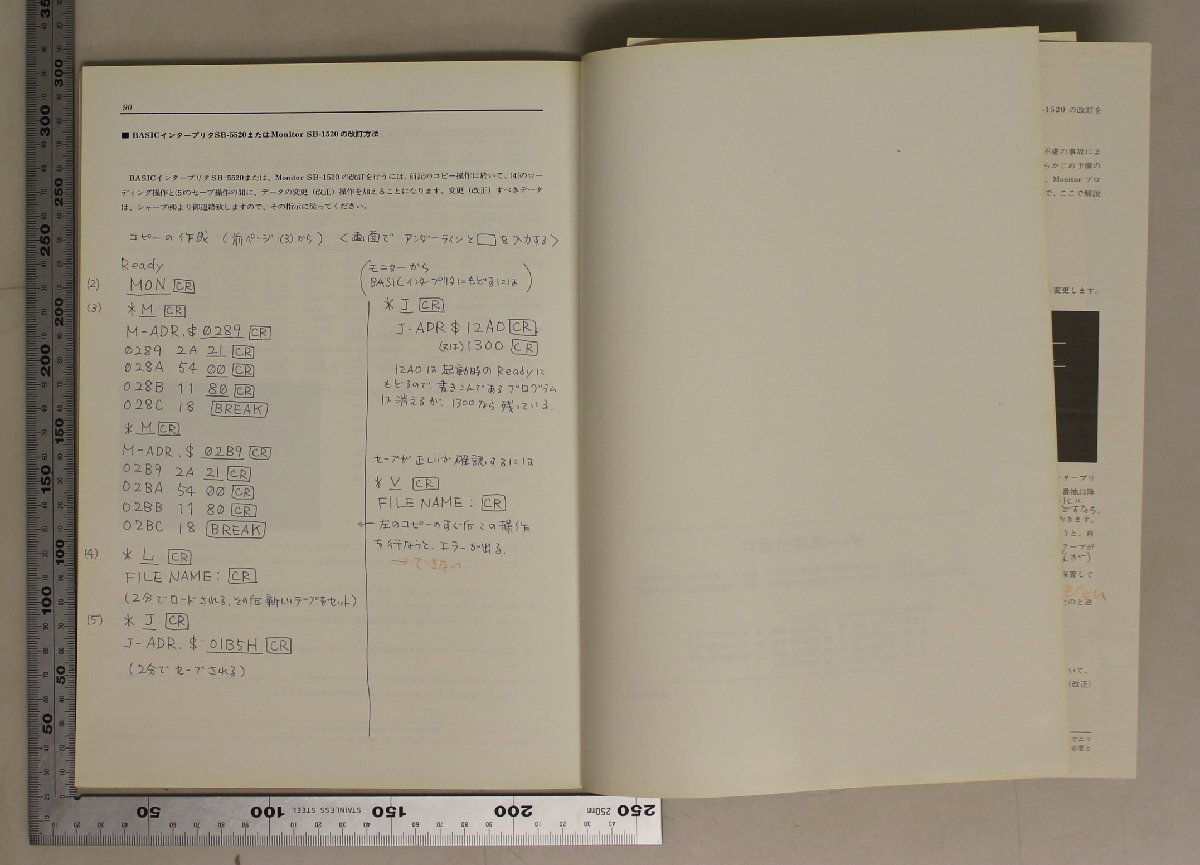 90
■ BASICインタープリタSB-5520またはMonitor SB-1520の改訂方法
BASICインタープリタSB-5520または、Monitor SB-1520の改訂を行うには、前記のコピー操作に於いて、(4)のロー
ディング操作と(5)のセーブ操作の間に、データの変更(改正)操作を加えることになります。変更(改正)すべきデータ
は、シャープ㈱より御連絡致しますので、その指示に従ってください。
コピーの作成 (前ページ(3)から) <画面で アンダーラインと□を入力する>
Ready
(2) MON CR
(3) *M CR
M-ADR.$ 0289 CR
0289 2A 21 CR
028A 54 00 CR
028B 11 80 CR
028C 18 BREAK
*M CR
M-ADR.$ 02B9 CR
02B9 2A 21 CR
02BA 54 00 CR
02BB 11 80 CR
02BC 18 BREAK
(4) * L CR
FILE NAME: CR
(2分でロードされる、その后新しいテープをセット)
(5) * J CR
J-ADR.$ 01B5H CR
(2分でセーブされる)
(モニターから
BASICインタープリタにもどるには)
* J CR
J-ADR $ 12A0 CR
(又は) 1300 CR
12A0は起動時のReadyに
もどるので、書きこんであるプログラム
は消えるが、1300なら残っている.
セーブが正しいか確認するには
* V CR
FILE NAME: CR
← 左のコピーのすぐ后この操作
を行なうと、エラーが出る.
→できない
-1520 の改訂を
不慮の事故によ
らかじめ予備の
、Monitor プロ
で、ここで解説
変更します。
ータープリ
番地以降
なきます。
うと、麻
テープが
保管して
のと逆
いて、
(改正)
でエラ
必要と
50 100 150 200 250
STAINLESS STEEL
250mm
300
250
200
150
100
50